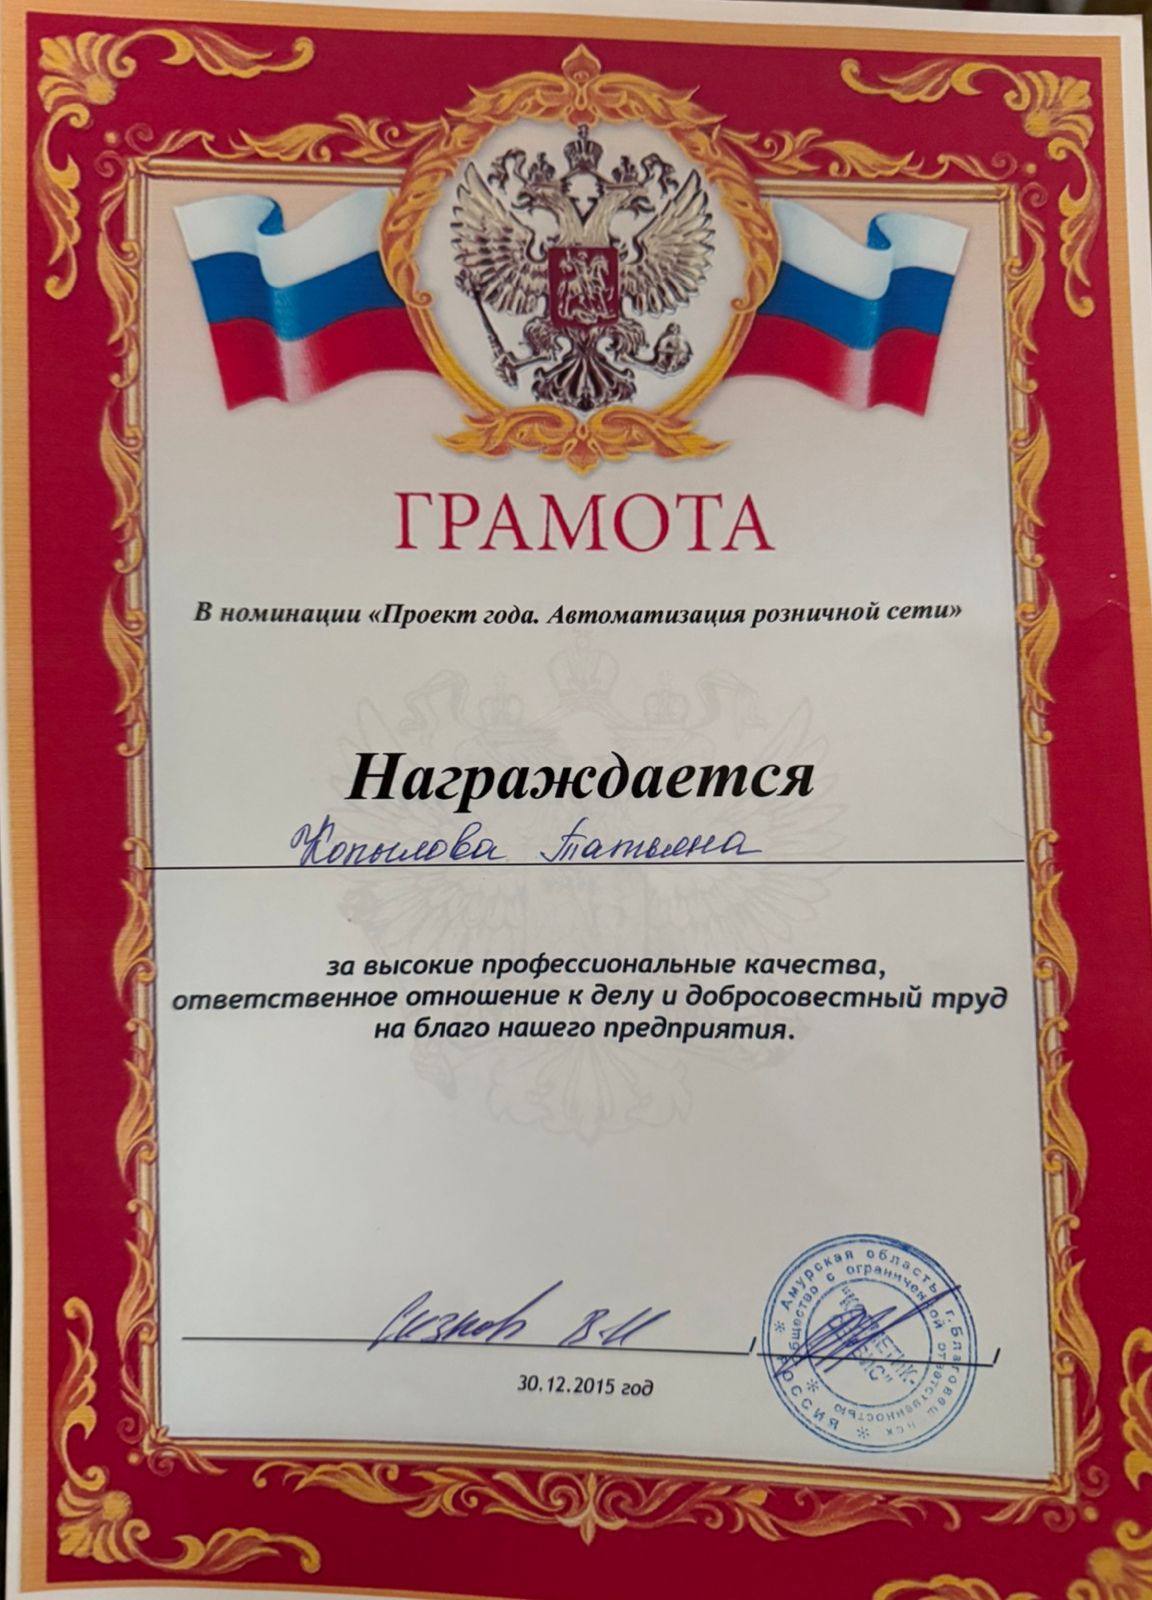 ГРАМОТА
В номинации «Проект года. Автоматизация розничной сети»
Награждается
Копылова Татьяна
за высокие профессиональные качества,
ответственное отношение к делу и добросовестный труд
на благо нашего предприятия.
В.И
/ /
30.12.2015 год
* Амурская область, г.Благовещенск * РОССИЯ
Общество с ограниченной ответственностью *